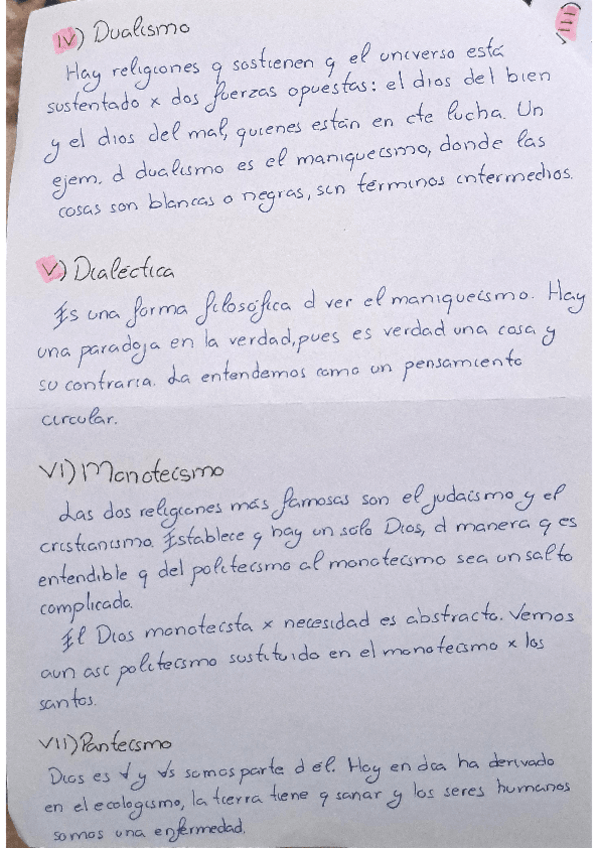 III
IV) Dualismo
Hay religiones q sostienen q el universo está
sustentado x dos fuerzas opuestas: el dios del bien
y el dios del mal, quienes están en cte lucha. Un
ejem. d dualismo es el maniqueísmo, donde las
cosas son blancas o negras, sin términos intermedios.
V) Dialéctica
Es una forma filosófica d ver el maniqueísmo. Hay
una paradoja en la verdad, pues es verdad una cosa y
su contraria. La entendemos como un pensamiento
circular.
VI) Monoteísmo
Las dos religiones más famosas son el judaísmo y el
cristianismo. Establece q hay un solo Dios, d manera q es
entendible q del politeísmo al monoteísmo sea un salto
complicado.
El Dios monoteísta x necesidad es abstracto. Vemos
aun así politeísmo sustituido en el monoteísmo x los
santos.
VII) Panteísmo
Dios es ∀ y ∀s somos parte d él. Hoy en día ha derivado
en el ecologismo, la tierra tiene q sanar y los seres humanos
somos una enfermedad.